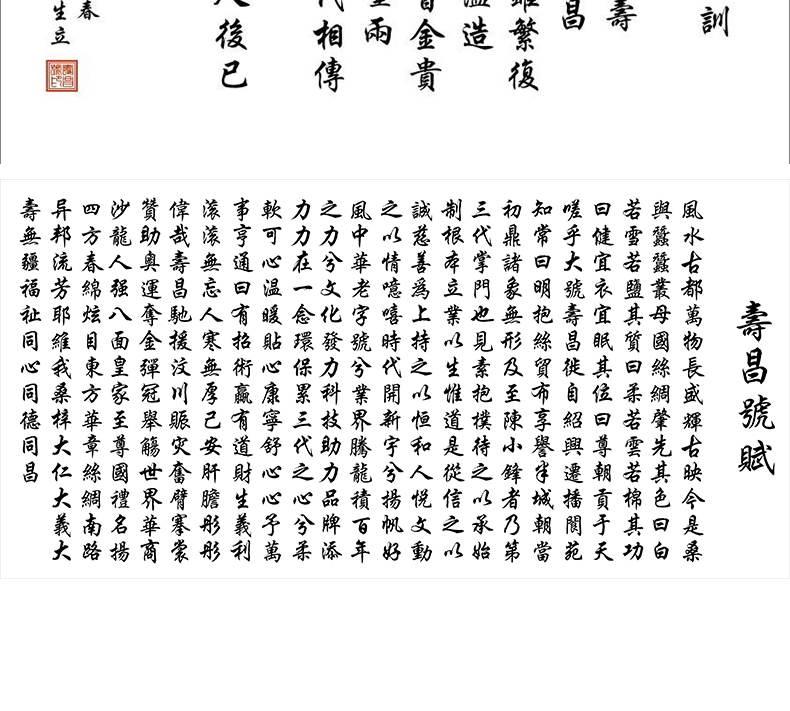 訓
壽
昌
繁復
造
金貴
雨
相傳
後已
春
生立
壽昌號賦
風水古都萬物長盛輝古映今是桑
與蠶蠶叢母國絲綢肇先其色曰白
若雪若鹽其質曰柔若雲若棉其功
曰健宜衣宜眠其位曰尊朝貢于天
嗟乎大號壽昌徙自紹興遷播閬苑
知常曰明抱絲貿布享譽半城朝當
初鼎諸象無形及至陳小鋒者乃第
三代掌門也見素抱樸待之以承始
制根本立業以生惟道是從信之以
誠慈善爲上持之以恒和人悅文動
之以情噫嘻時代開新宇兮揚帆好
風中華老字號兮業界騰龍積百年
之力兮文化發力科技助力品牌添
力力在一念環保累三代之心兮柔
軟可心溫暖貼心康寧舒心心予萬
事亨通曰有招術贏有道財生義利
滚滚無忘人寒無厚己安肝膽彤彤
偉哉壽昌馳援汶川賑灾奮臂搴裳
贊助奧運奪金彈冠舉觴世界華商
沙龍人强八面皇家至尊國禮名揚
四方春綿炫目東方華章絲綢南路
异邦流芳耶維我桑梓大仁大義大
壽無疆福祉同心同德同昌